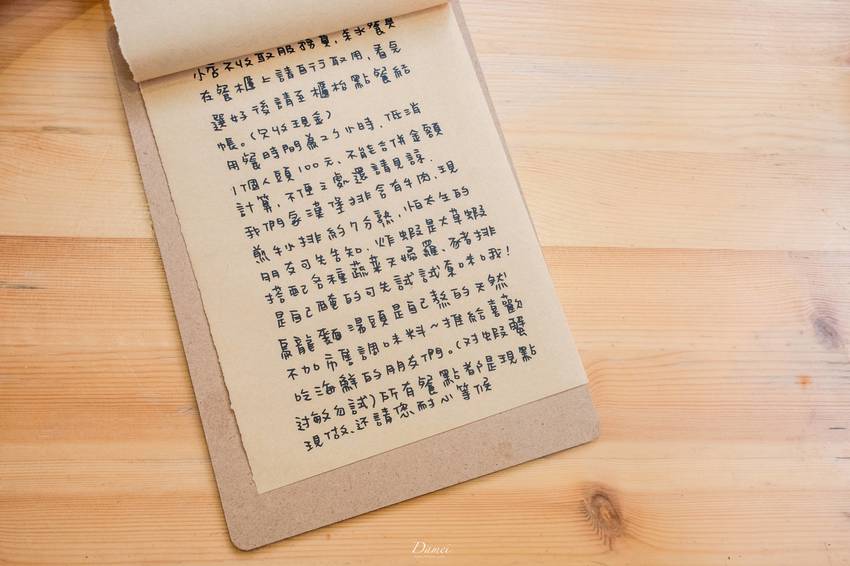 小店不收取服務費，茶水餐具
在餐櫃上請自行取用，看完
選好後請至櫃枱點餐結
帳。(只收現金)
用餐時間為2小時，低消
1個人頭100元、不能合併金額
計算，不便之處還請見諒．
我們家漢堡排含有牛肉，現
煎牛排約7分熟，怕太生的
朋友可先告知．炸蝦是大草蝦
搭配各種蔬菜天婦羅、豬排
是自己醃的可先試試原味哦！
烏龍麵湯頭是自己熬的天然
不加市售調味料～推給喜歡
吃海鮮的朋友們。(对蝦蟹
过敏勿試)所有餐點都是現點
現做、还請您耐心等候
Damei